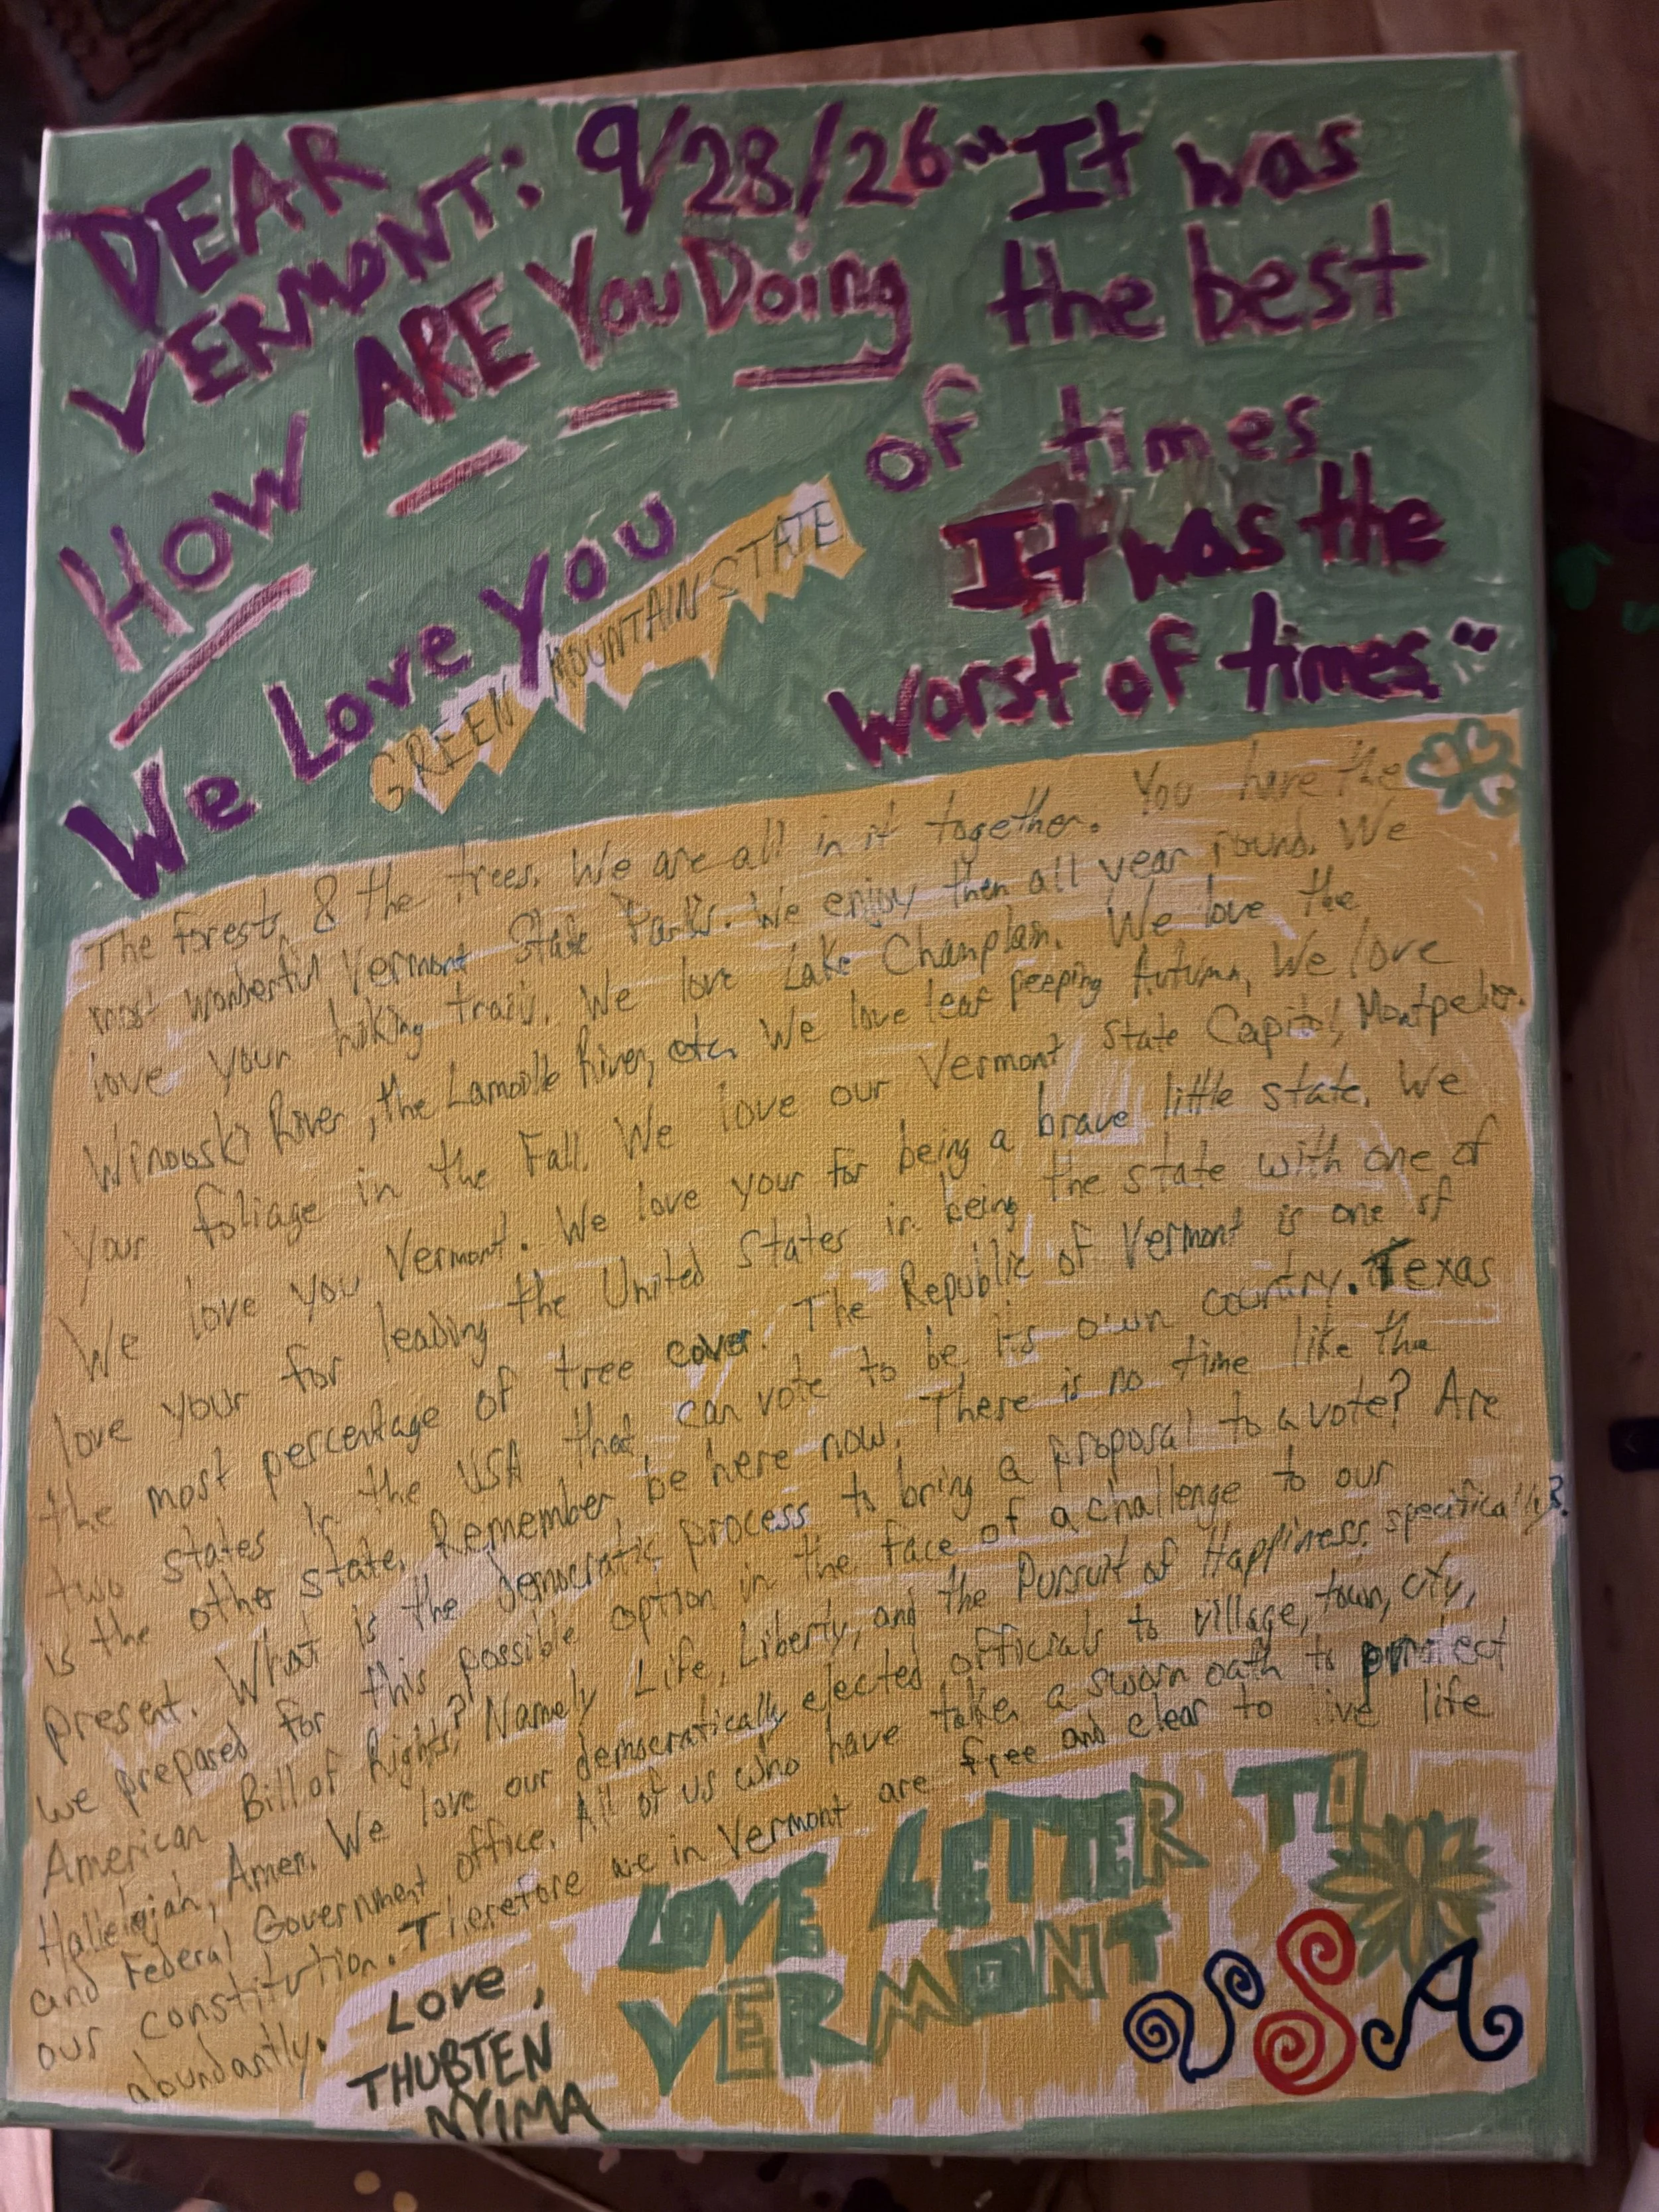 DEAR
VERMONT: 9/28/26
HOW ARE You Doing
We Love You
GREEN MOUNTAIN STATE
"It was
the best
of times
It was the
worst of times."
The forests & the trees. We are all in it together. You have the
most wonderful Vermont State Parks. We enjoy then all year round. We
love your hiking trails. We love Lake Champlain. We love the
Winooski River, the Lamoille River, etc. We love leaf peeping Autumn, We love
your foliage in the Fall. We love our Vermont State Capitol, Montpelier.
We love you Vermont. We love your for being a brave little state. We
love your for leading the United States in being the state with one of
the most percentage of tree cover. The Republic of Vermont is one of
two states in the USA that can vote to be its own country. Texas
is the other state. Remember, be here now. There is no time like the
present. What is the democratic process to bring a proposal to a vote? Are
we prepared for this possible option in the face of a challenge to our
American Bill of Rights? Namely Life, Liberty, and the Pursuit of Happiness, specifically?
Hallelujah, Amen. We love our democratically elected officials to village, town, city,
and Federal Government office. All of us who have taken a sworn oath to protect
our constitution. Therefore we in Vermont are free and clear to live life
abundantly.
Love,
THUBTEN
NYIMA
LOVE LETTER TO
VERMONT
USA